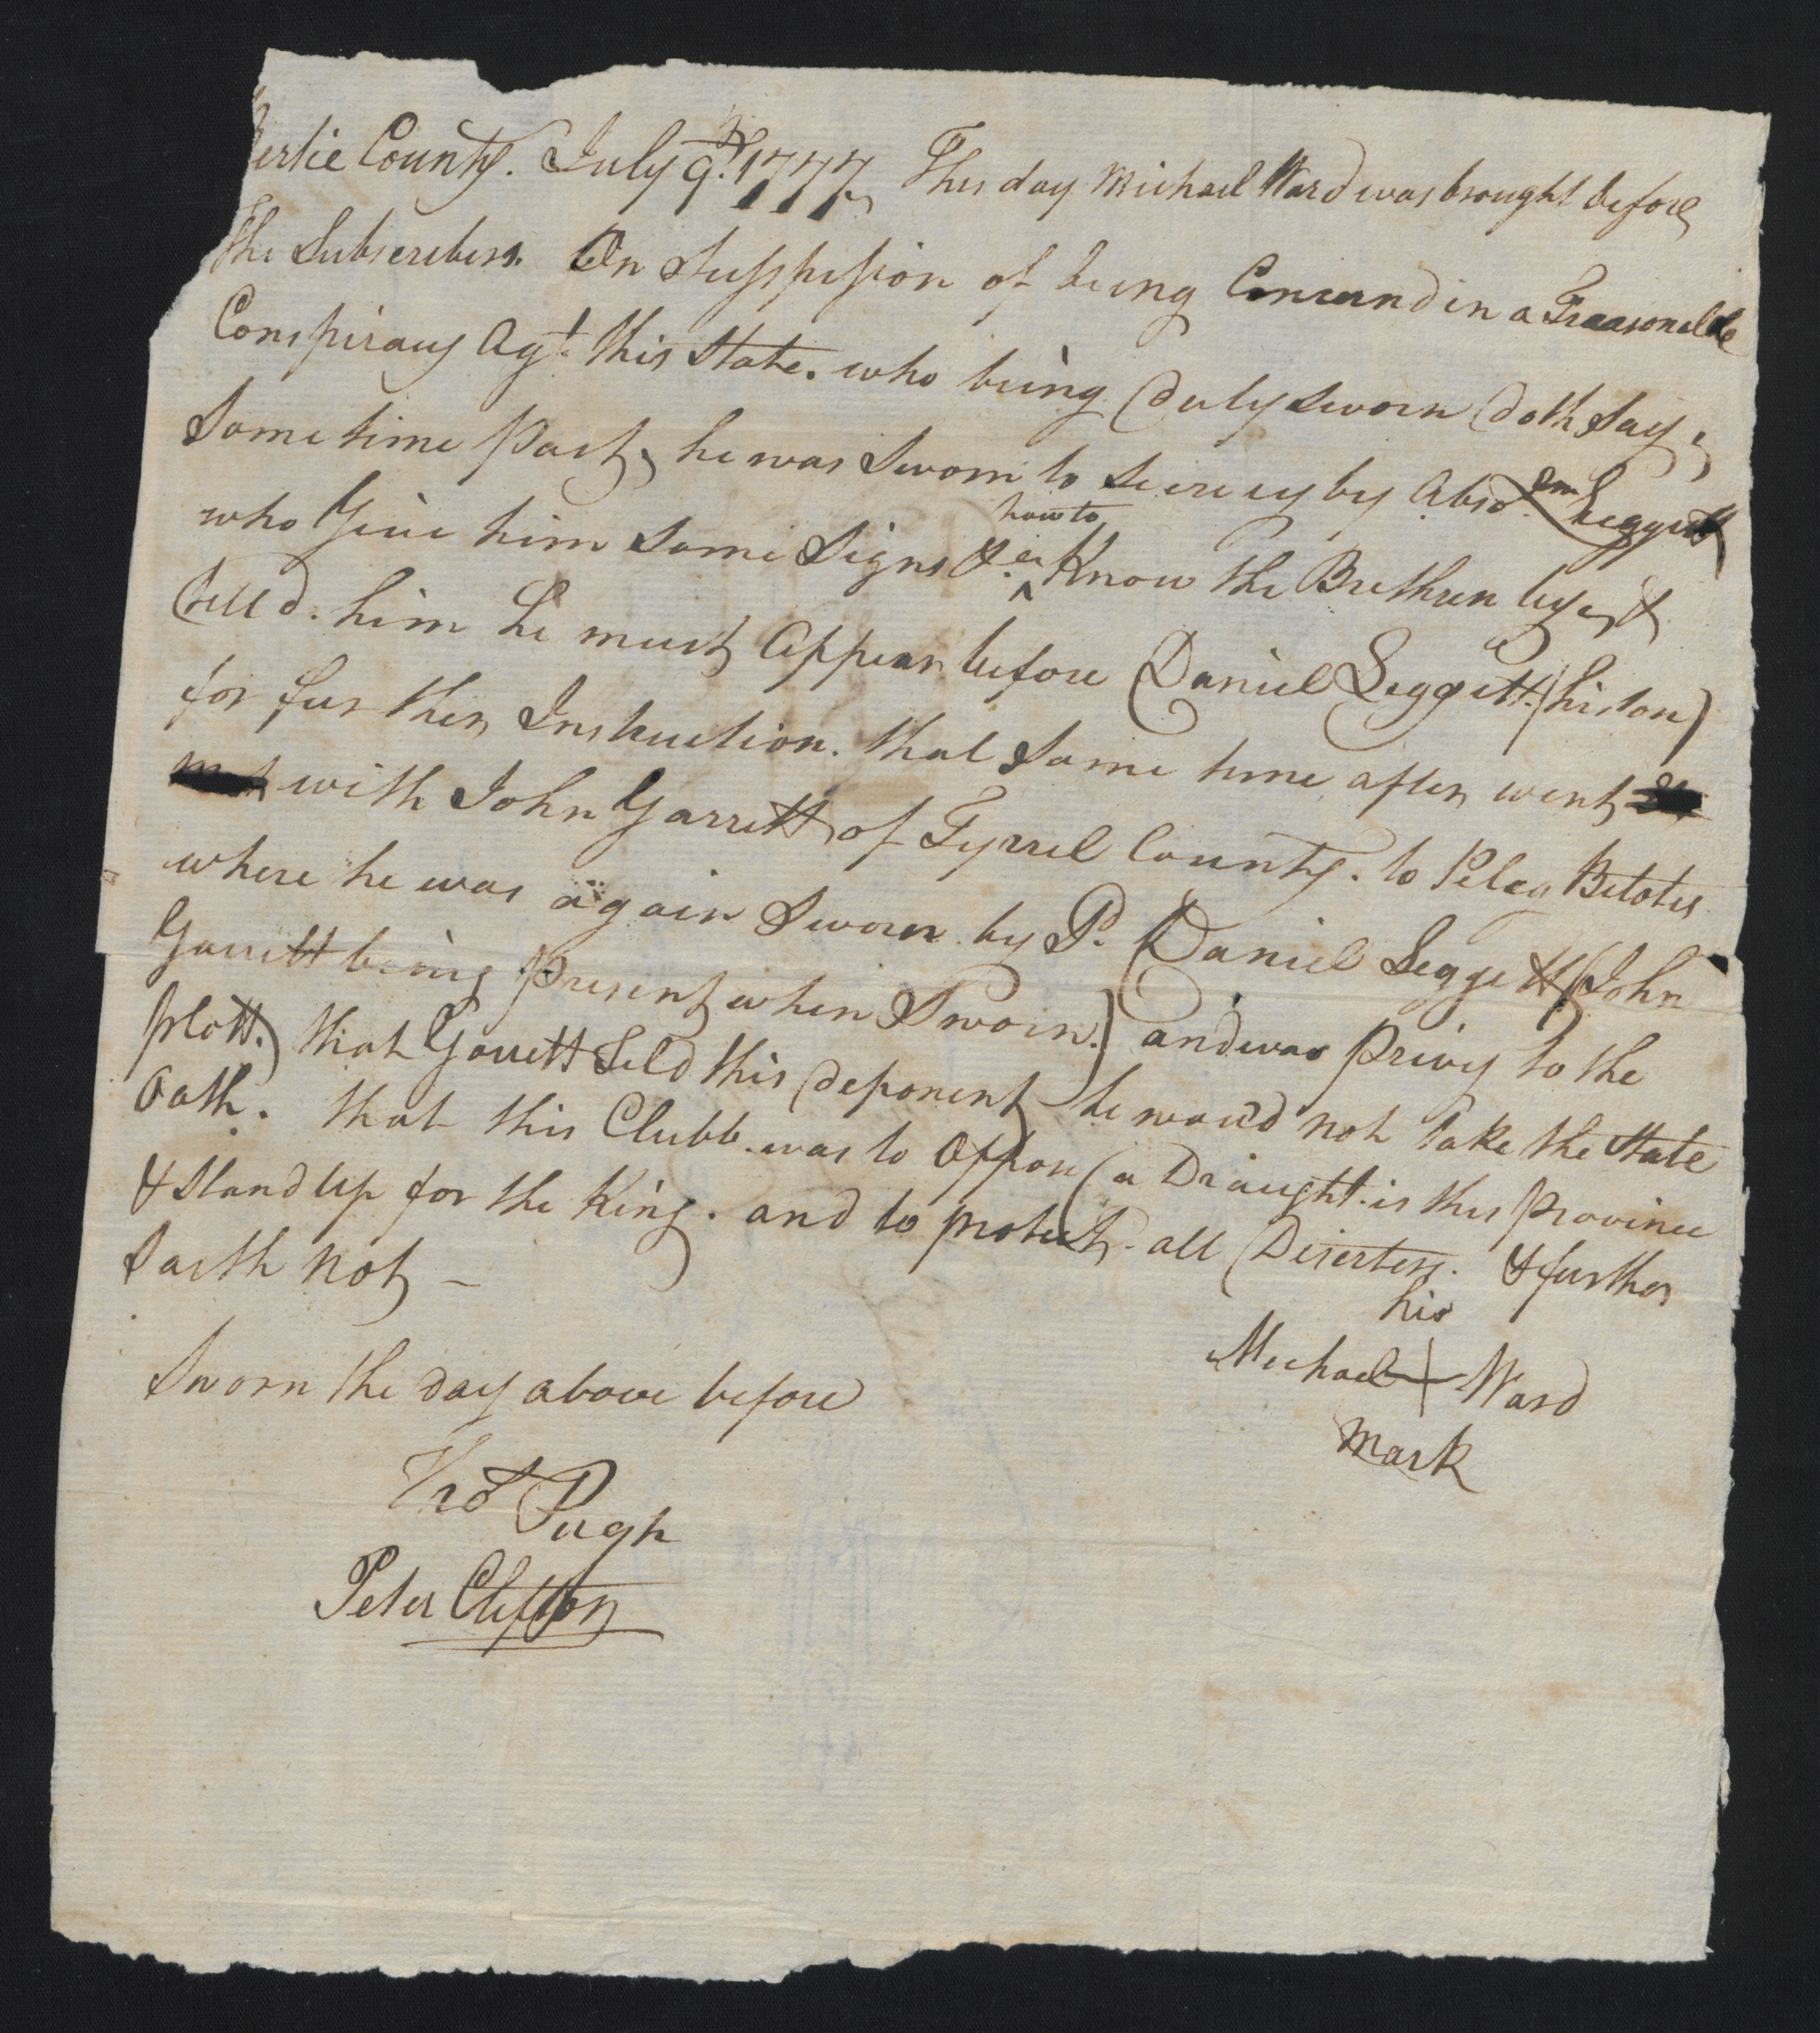 Bertie County. July 9th. 1777, This day Michael Ward was brought before
The Subscribers. On Susspission of being Concernd in a Treasonable
Conspiracy Agt. this State. who being duly sworn doth Say,
Some time Past, he was Sworn to Secrecy by Abso.em Leggett
who Give him some Signs &c how to Know the Brethren by, &
tel'd. him he must Appear before Daniel Leggett. (his son)
for further Instruction. that Some time after went
with John Garrett of Tyrrel County. to Peleg Belotes
where he was again Sworn by P. Daniel Leggett (John
Garrett being Present when Sworn.) and was Privy to the
Plott. that Garrett Teld this deponent he would not Take the State
Oath. that this Clubb. was to Oppose a Draught. is this Province
& Stand Up for the King. and to protect. all Diserters. & further
Saith not —
his
Michael + Ward
mark
Sworn the day above before
Thos Pugh
Peter Clifton